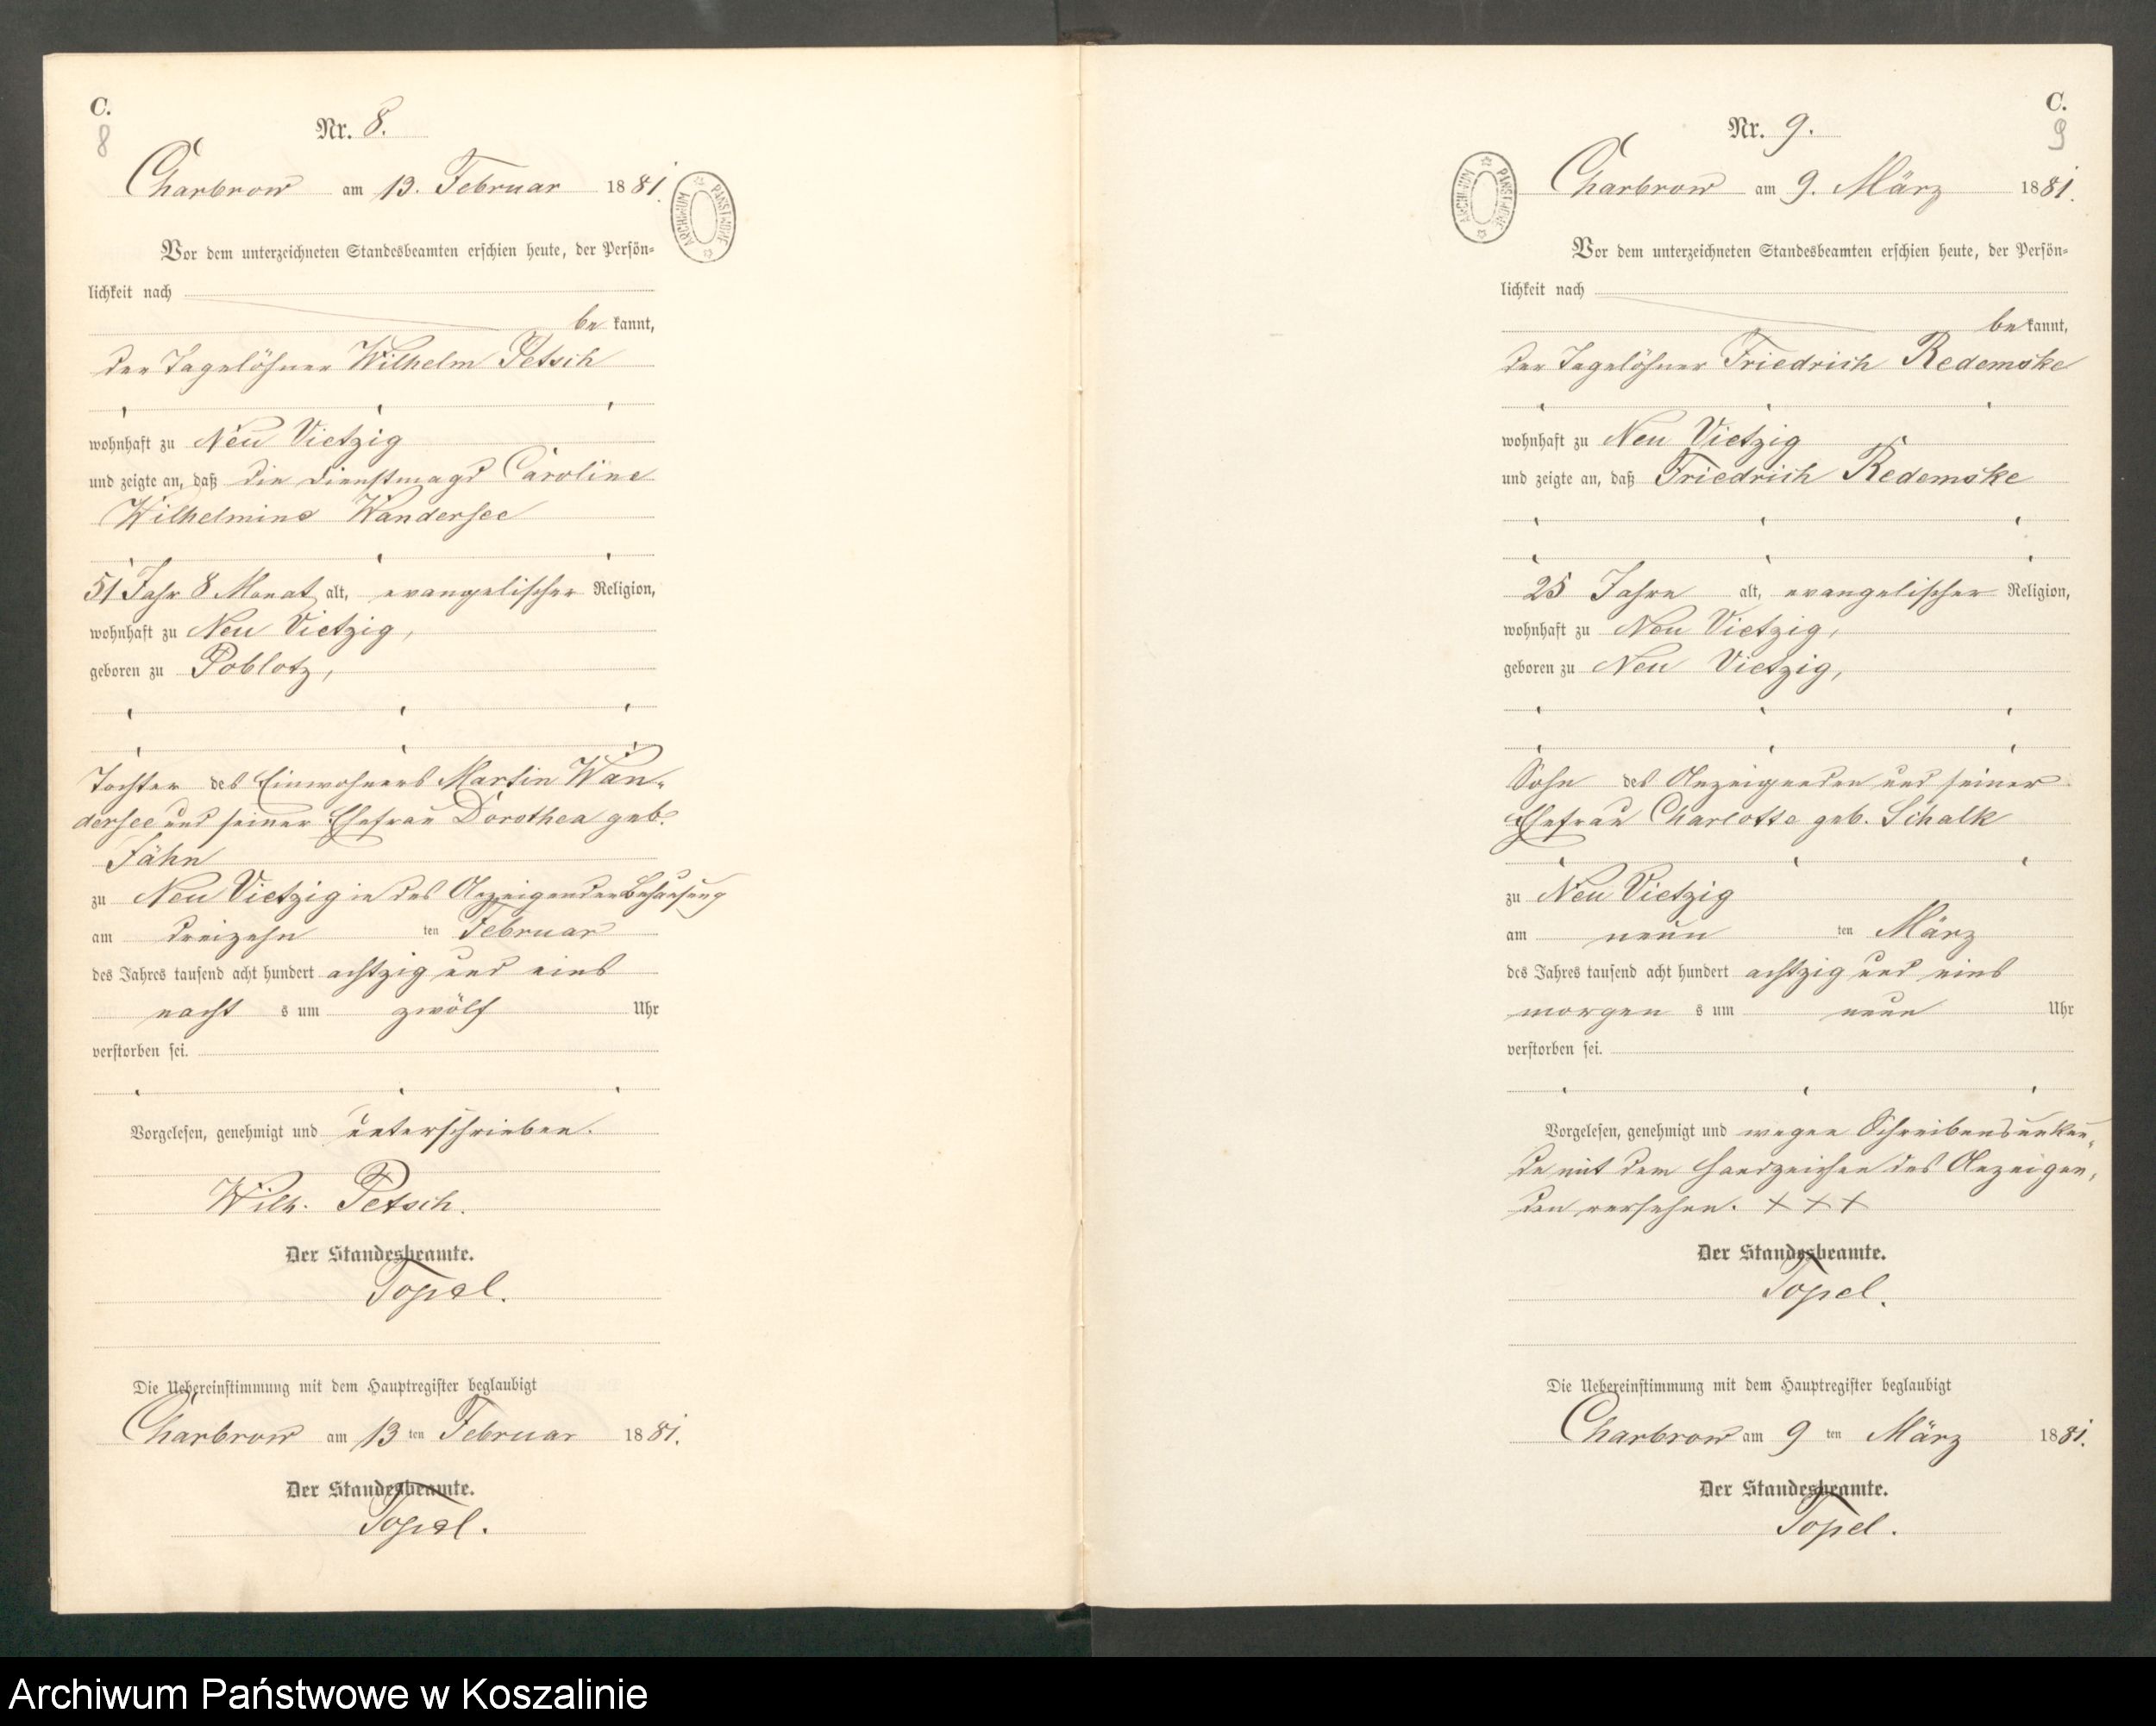 C.
8
Nr. 8.
Charbrow am 13. Februar 1881.
ARCHIWUM PAŃSTWOWE
Vor dem unterzeichneten Standesbeamten erschien heute, der Persön-
lichkeit nach
be kannt,
der Tagelöhner Wilhelm Petsch
wohnhaft zu Neu Vietzig
und zeigte an, daß die Dienstmagd Caroline
Wilhelmine Wandersee
51 Jahr 8 Monat alt, evangelischer Religion,
wohnhaft zu Neu Vietzig,
geboren zu Poblotz,
Tochter des Einwohners Martin Wan-
dersee und seiner Ehefrau Dorothea geb.
Jähn
zu Neu Vietzig in des Anzeigenden Behausung
am dreizehn ten Februar
des Jahres tausend acht hundert achtzig und eins
nacht s um zwölf Uhr
verstorben sei.
Vorgelesen, genehmigt und unterschrieben.
Wilh. Petsch.
Der Standesbeamte.
Topel.
Die Uebereinstimmung mit dem Hauptregister beglaubigt
Charbrow am 13 ten Februar 1881.
Der Standesbeamte.
Topel.
C.
9
Nr. 9.
ARCHIWUM PAŃSTWOWE
Charbrow am 9. März 1881.
Vor dem unterzeichneten Standesbeamten erschien heute, der Persön-
lichkeit nach
be kannt,
der Tagelöhner Friedrich Redemske
wohnhaft zu Neu Vietzig
und zeigte an, daß Friedrich Redemske
25 Jahre alt, evangelischer Religion,
wohnhaft zu Neu Vietzig,
geboren zu Neu Vietzig,
Sohn des Anzeigenden und seiner
Ehefrau Charlotte geb. Schalk
zu Neu Vietzig
am neun ten März
des Jahres tausend acht hundert achtzig und eins
morgen s um neun Uhr
verstorben sei.
Vorgelesen, genehmigt und wegen Schreibensunkun-
de mit dem Handzeichen des Anzeigen-
den versehen. + + +
Der Standesbeamte.
Topel.
Die Uebereinstimmung mit dem Hauptregister beglaubigt
Charbrow am 9 ten März 1881.
Der Standesbeamte.
Topel.
Archiwum Państwowe w Koszalinie